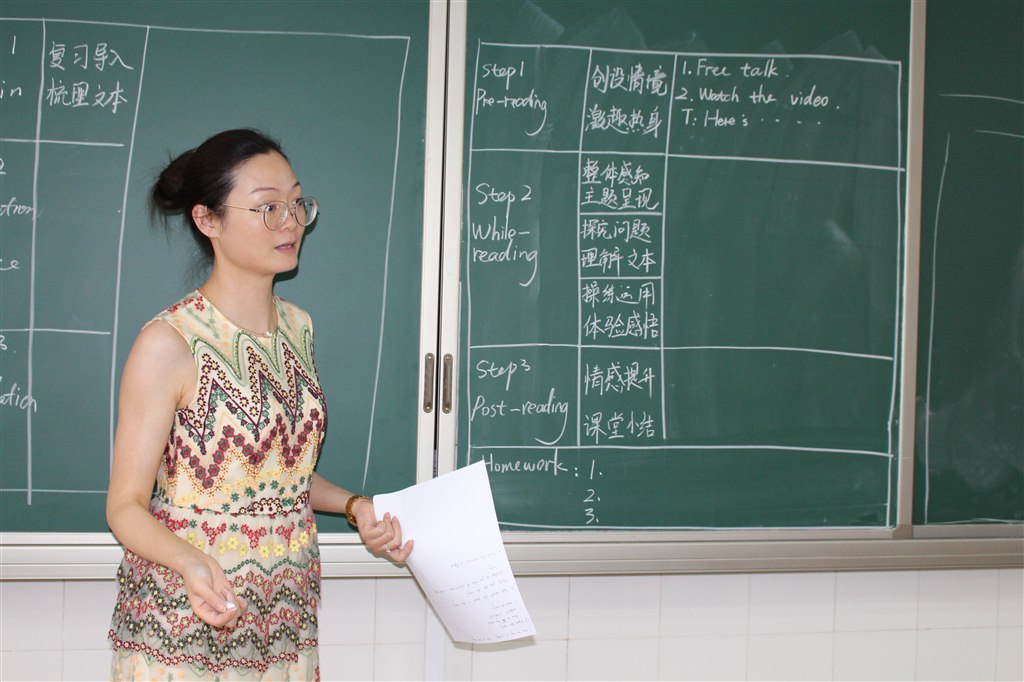 1
in
复习导入
梳理文本
2
ction
ce
3.
ation
Step1
Pre-reading
创设情境
激趣热身
1. Free talk.
2. Watch the video.
T: Here's ·····
Step 2
While-
reading
整体感知
主题呈现
探究问题
理解文本
操练运用
体验感悟
Step3
Post-reading
情感提升
课堂小结
Homework: 1.
2.
3.